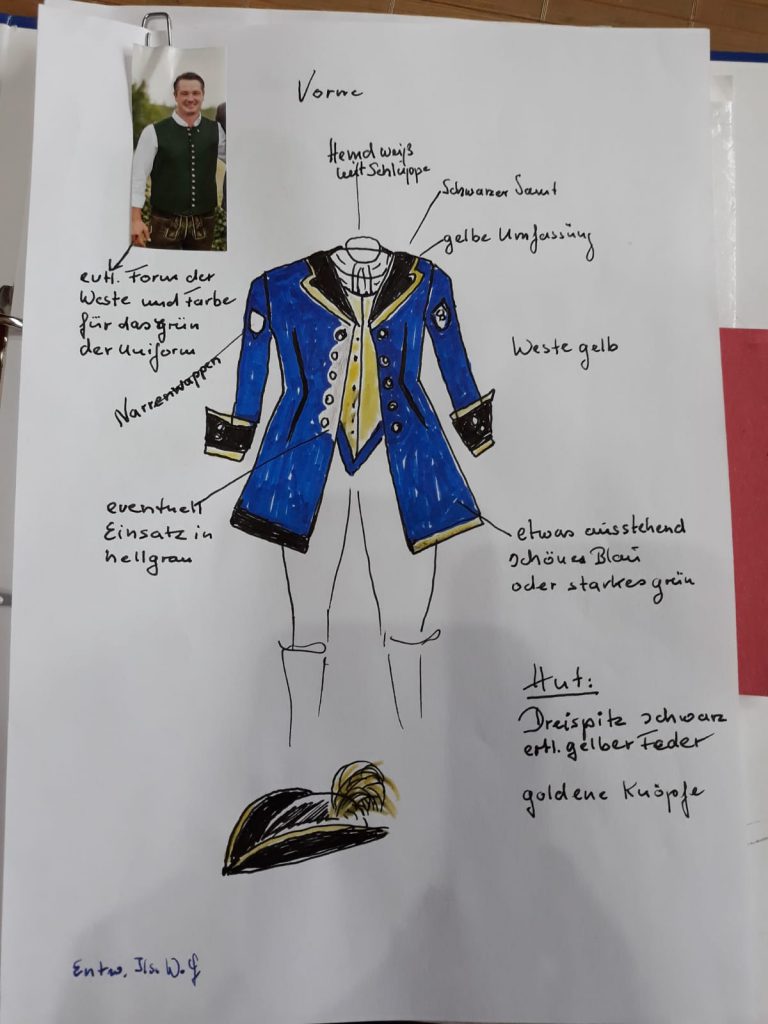 Vorne
Hemd weiß
mit Schluppe
Schwarzer Samt
gelbe Umfassung
evtl. Form der
Weste und Farbe
für das grün
der Uniform
Weste gelb
Narrenwappen
eventuell
Einsatz in
hellgrau
etwas ausstehend
schönes Blau
oder starkes grün
Hut:
Dreispitz schwarz
evtl. gelber Feder
goldene Knöpfe
Entw.